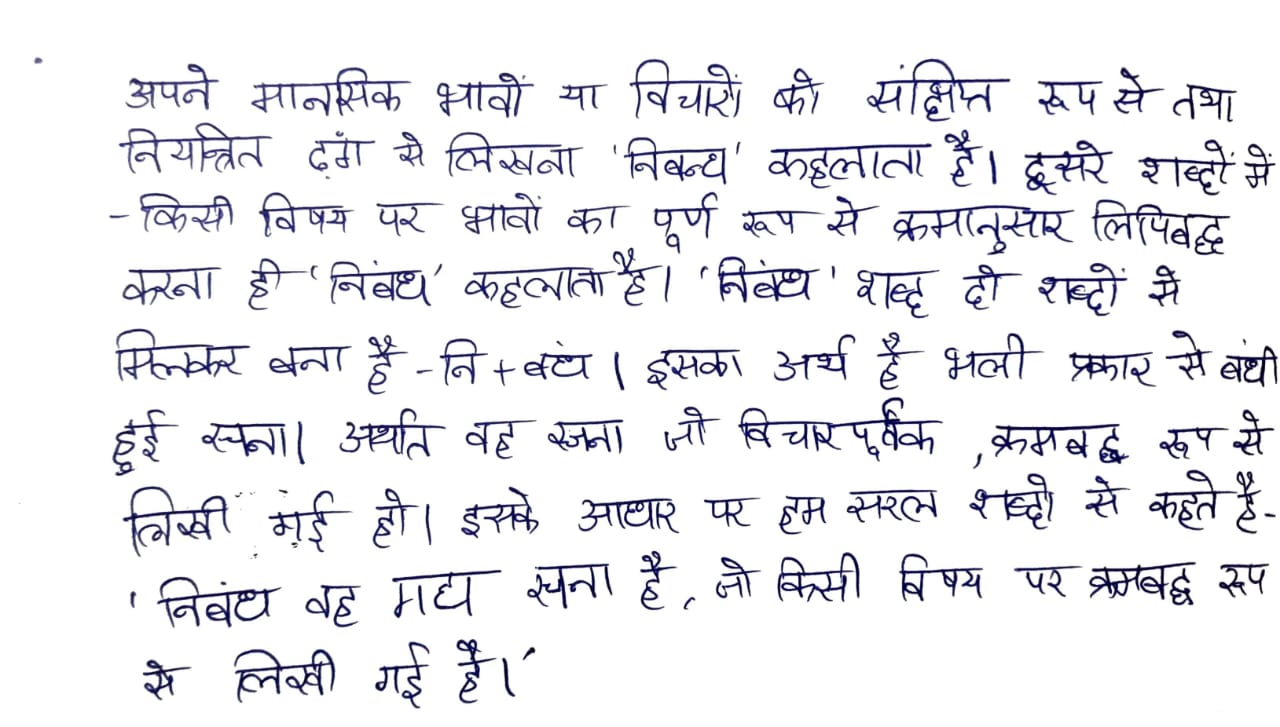 अपने मानसिक भावों या विचारों को संक्षिप्त रूप से तथा
नियन्त्रित ढ़ंग से लिखना 'निबन्ध' कहलाता है। दूसरे शब्दों में
-किसी विषय पर भावों का पूर्ण रूप से क्रमानुसार लिपिबद्ध
करना ही 'निबंध' कहलाता है। 'निबंध' शब्द दो शब्दों से
मिलकर बना है -नि + बंध। इसका अर्थ है भली प्रकार से बंधी
हुई रचना। अर्थात वह रचना जो विचारपूर्वक ,क्रमबद्ध रूप से
लिखी गई हो। इसके आधार पर हम सरल शब्दो से कहते है-
'निबंध वह गद्य रचना है, जो किसी विषय पर क्रमबद्ध रूप
से लिखी गई है।'